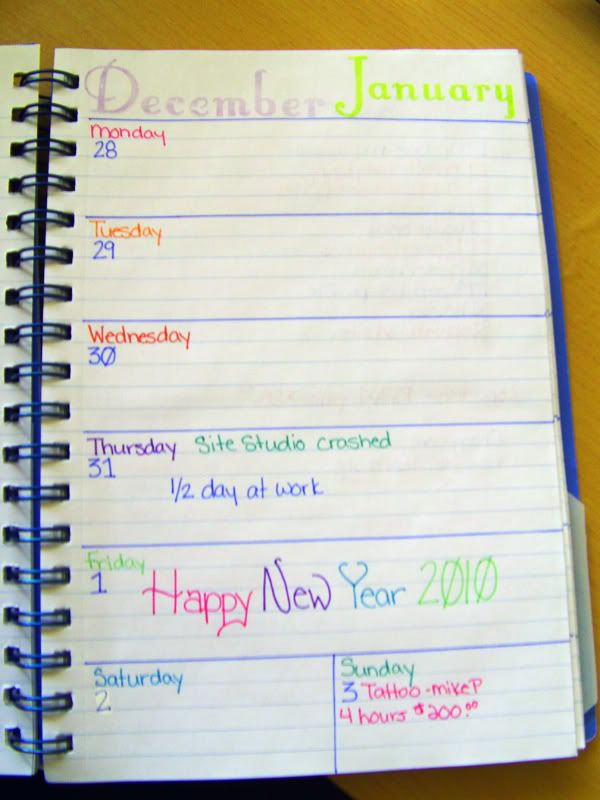 December January
monday
28
Tuesday
29
Wednesday
30
Thursday Site Studio crashed
31
1/2 day at work
Friday
1 Happy New Year 2010
Saturday
2
Sunday
3 Tattoo - mike P
4 hours $200.00